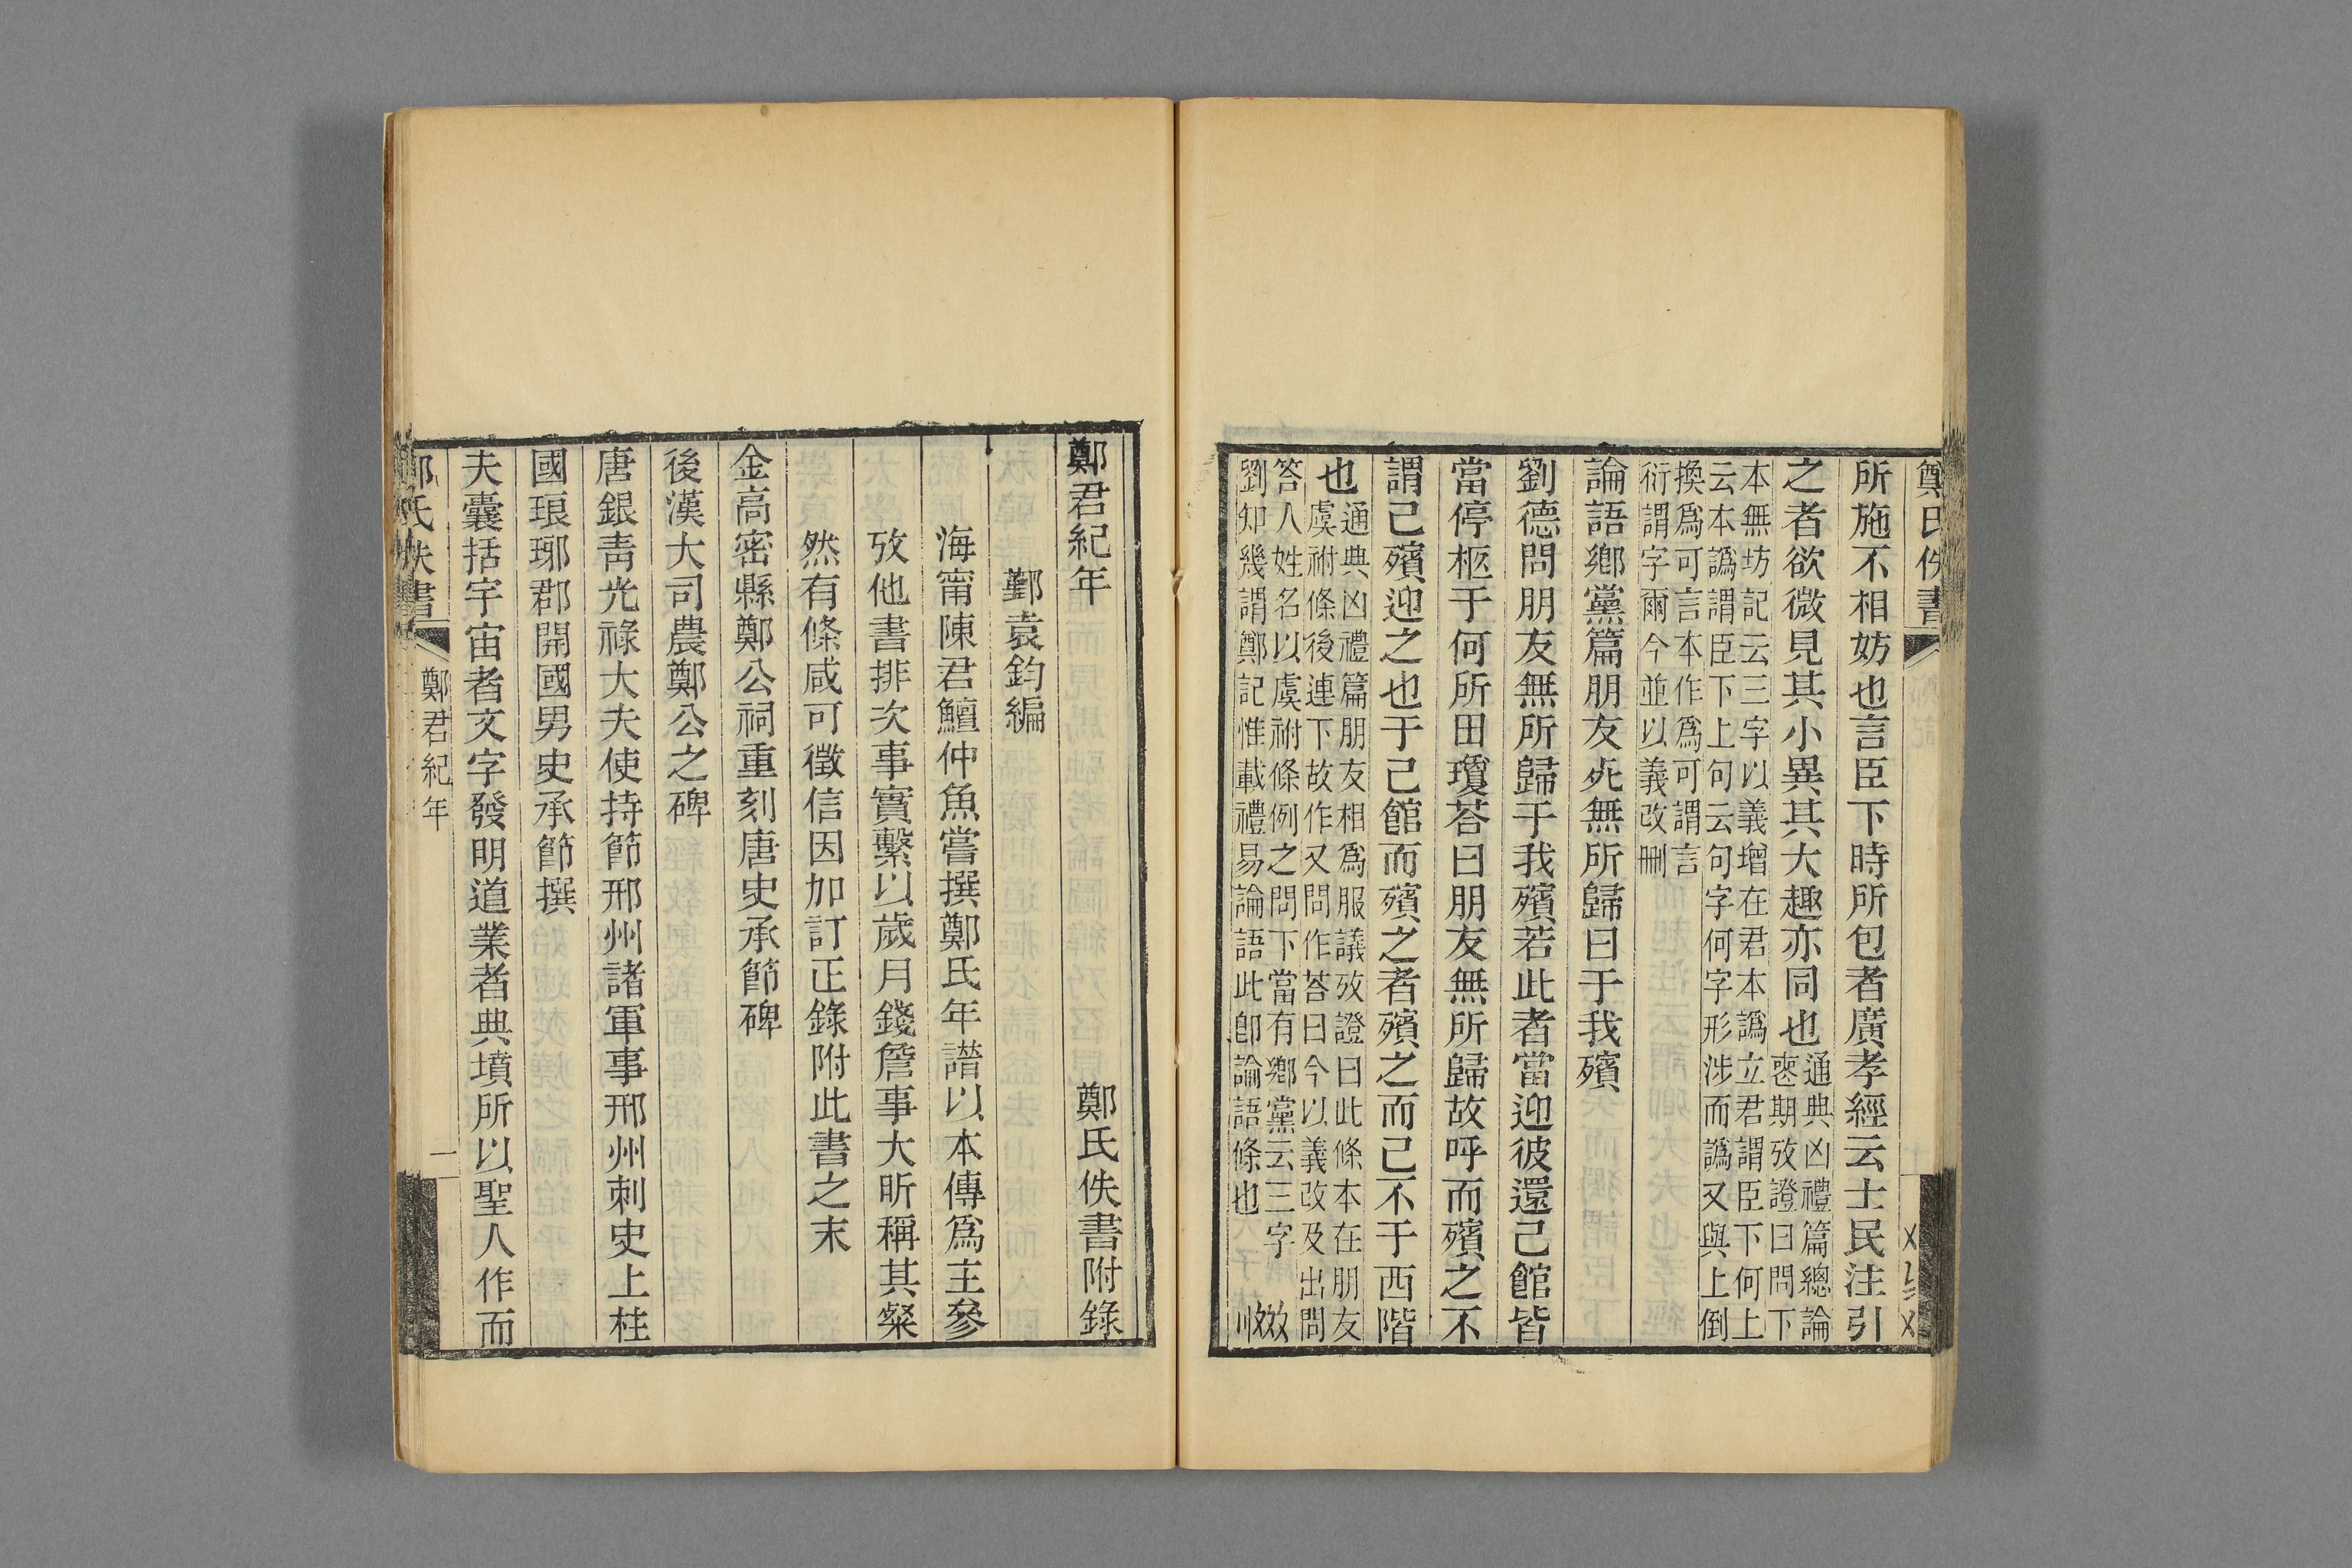 鄭氏佚書
所施不相妨也言臣下時所包者廣孝經云士民注引
之者欲微見其小異其大趣亦同也
通典凶禮篇總論
喪期攷證曰問下
本無坊記云三字以義增在君本譌立君謂臣下何上
云本譌謂臣下上句云句字何字形涉而譌又與上倒
換爲可言本作爲可謂言
衍謂字爾今並以義改刪
論語鄉黨篇朋友死無所歸曰于我殯
劉德問朋友無所歸于我殯若此者當迎彼還己館皆
當停柩于何所田瓊荅曰朋友無所歸故呼而殯之不
謂己殯迎之也于己館而殯之者殯之而已不于西階
也
通典凶禮篇朋友相爲服議攷證曰此條本在朋友
虞祔條後連下故作又問作荅曰今以義改及出問
答人姓名以虞祔條例之問下當有鄉黨云三字
劉知幾謂鄭記惟載禮易論語此卽論語條也
鄭君紀年
鄭氏佚書附錄
鄞袁鈞編
海甯陳君鱣仲魚嘗撰鄭氏年譜以本傳爲主參
攷他書排次事實繫以歲月錢詹事大昕稱其粲
然有條咸可徵信因加訂正錄附此書之末
金高密縣鄭公祠重刻唐史承節碑
後漢大司農鄭公之碑
唐銀青光祿大夫使持節邢州諸軍事邢州刺史上柱
國琅琊郡開國男史承節撰
夫囊括宇宙者文字發明道業者典墳所以聖人作而
鄭氏佚書
鄭君紀年
一